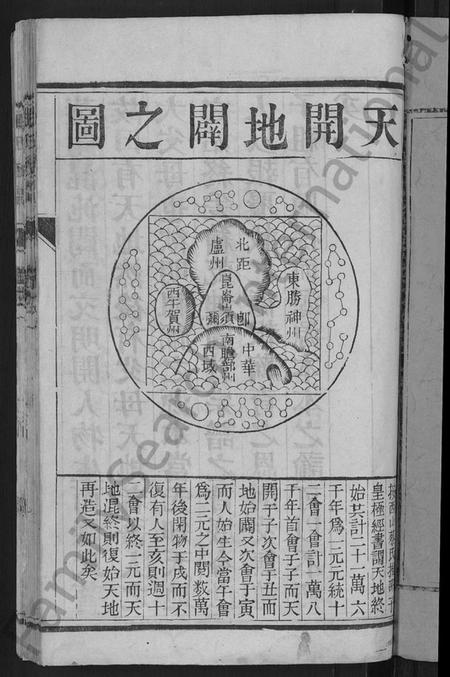 天開地闢之圖
北距
盧州
崑崙
須彌
即
東勝神州
西牛賀州
南瞻部州
中華
西域
皇極經書謂天地終
始其計二十一萬六
千年爲一元元統十
二會一會計一萬八
千年首會子子而天
開于子次會于丑而
地始闢又次會于寅
而人始生今當午會
爲二元之中閱数萬
年後閉物于戌而不
復有人至亥則週十
二會以終二元而天
地混終則復始天地
再造又如此矣
FamilySearch International